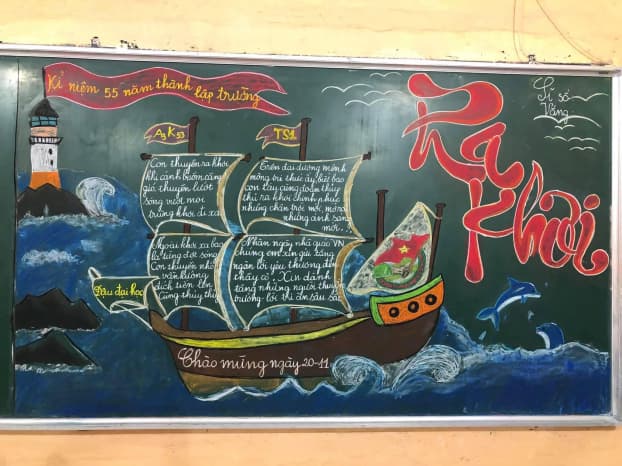 Kỉ niệm 55 năm thành lập trường
A3 K53
TS1
Ra
Khơi
Sĩ số:
Vắng:
Con thuyền ra khơi
khi cánh buồm căng
gió thuyền lướt
sóng vượt mọi
trùng khơi đi xa
Trên đại dương mênh
mông tri thức ấy, biết bao
con tàu cùng đoàn thủy
thủ ra khơi chinh phục
những chân trời mới, mở ra
những ánh sáng
mới...
Ngoài khơi xa bao
la từng đợt sóng
Con thuyền nhỏ
vẫn hướng
đích tiến lên
cùng thủy thủ
Nhân ngày nhà giáo VN
chúng em xin gửi tặng
ngàn lời yêu thương đến
thầy cô. Xin dành
tặng những người thuyền
trưởng lời tri ân sâu sắc
Đậu đại học
Chào mừng ngày 20-11